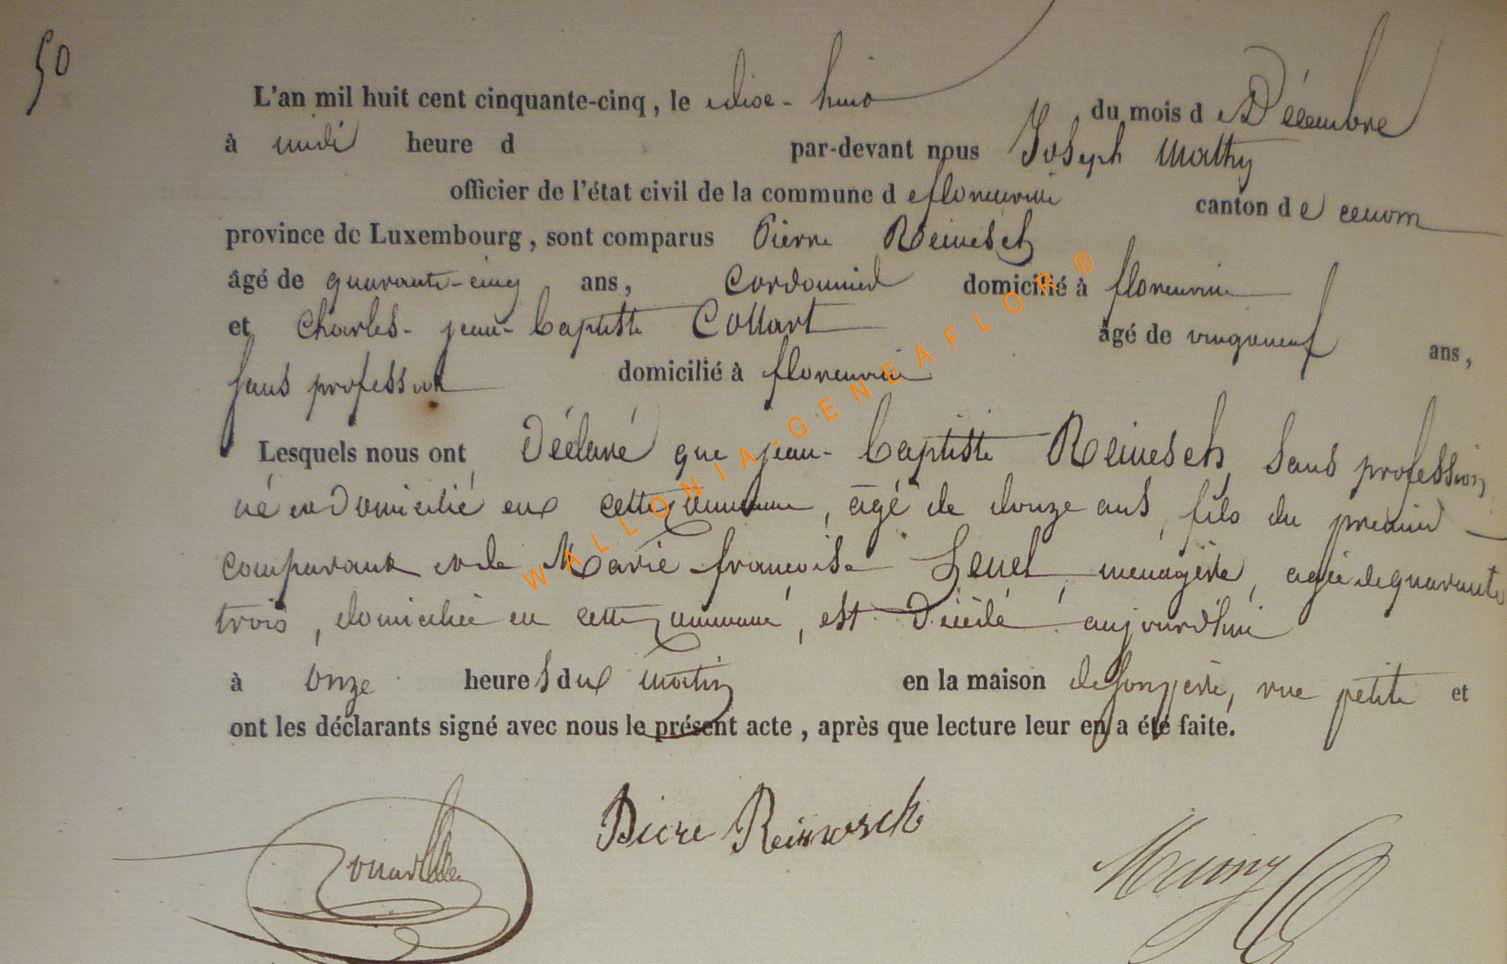 50
L'an mil huit cent cinquante-cinq, le dixe-huit du mois de Décembre
à midi heure d par-devant nous Joseph Mathy
officier de l'état civil de la commune de florenville canton de
province de Luxembourg, sont comparus Pierre Reinesch
âgé de quarante-cinq ans, Cordonnier domicilié à florenville
et Charles-jean-baptiste Collart âgé de vingtneuf ans,
sans profession domicilié à florenville
Lesquels nous ont Déclaré que jean-baptiste Reinesch, sans profession
né et Domicilié en cette commune, âgé de douze ans, fils du premier
comparant et de Marie françoise ménagère, agée de quarante
trois, domiciliée en cette commune, est Décédé aujourd'hui
à onze heures du matin en la maison rue petite et
ont les déclarants signé avec nous le présent acte, après que lecture leur en a été faite.
Reinesch
WALLONIA-GENEAFLOR®